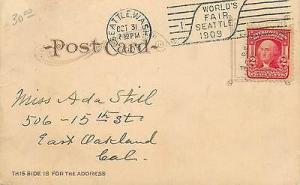 30.00
SEATTLE, WASH.
OCT 31
WORLD'S
FAIR
SEATTLE
1909
Post Card
Miss Ada Still
506-15th St
East Oakland
Cal.
THIS SIDE IS FOR THE ADDRESS